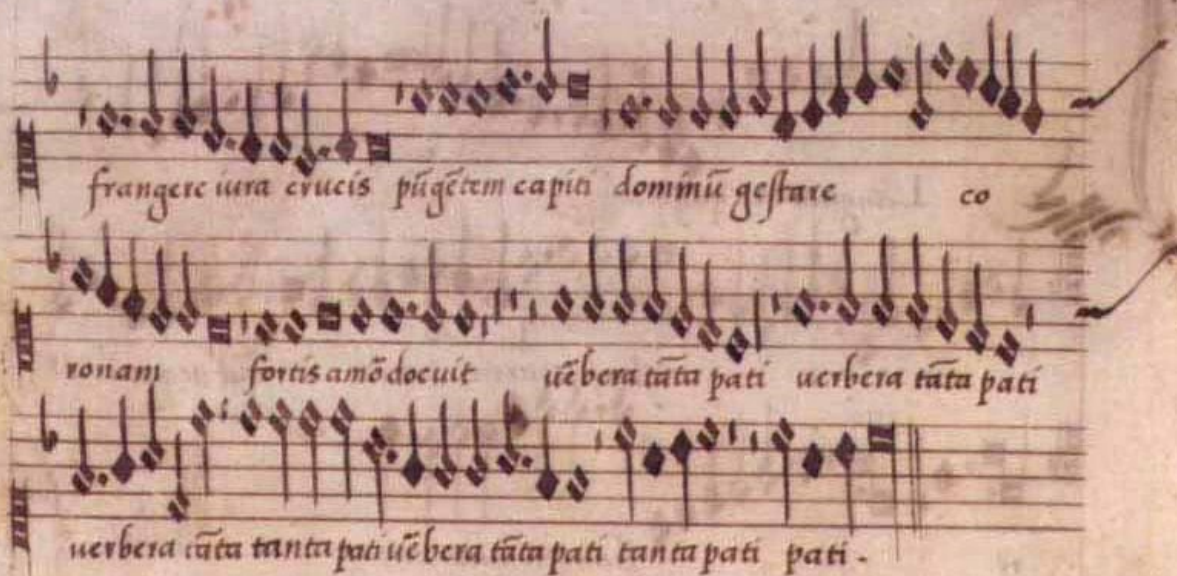 frangere iura crucis pūgētem capiti dominū gestare co
ronam fortis amō docuit uēbera tāta pati uerbera tāta pati
uerbera tāta tanta pati uēbera tāta pati tanta pati pati -